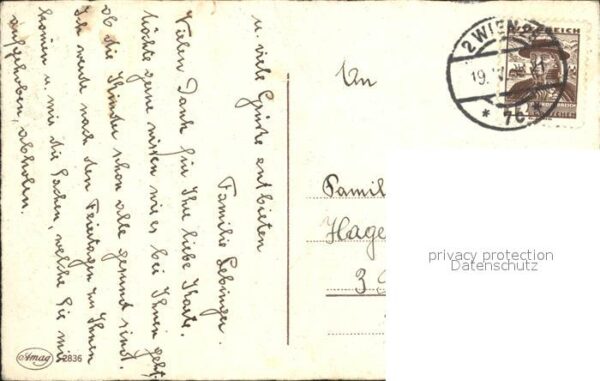 u. viele Grüße entbieten
Familie Lebinger.
Vielen Dank für Ihre liebe Karte.
möchte gerne wissen wie es bei Ihnen geht,
ob die Kinder schon alle gesund sind.
Ich werde nach den Feiertagen zu Ihnen
kommen u. mir die Sachen, welche Sie mir
aufgehoben, abholen.
An
Famili
Hage
3
2 WIEN
19.
76
REICH
Amag
2836
privacy protection
Datenschutz